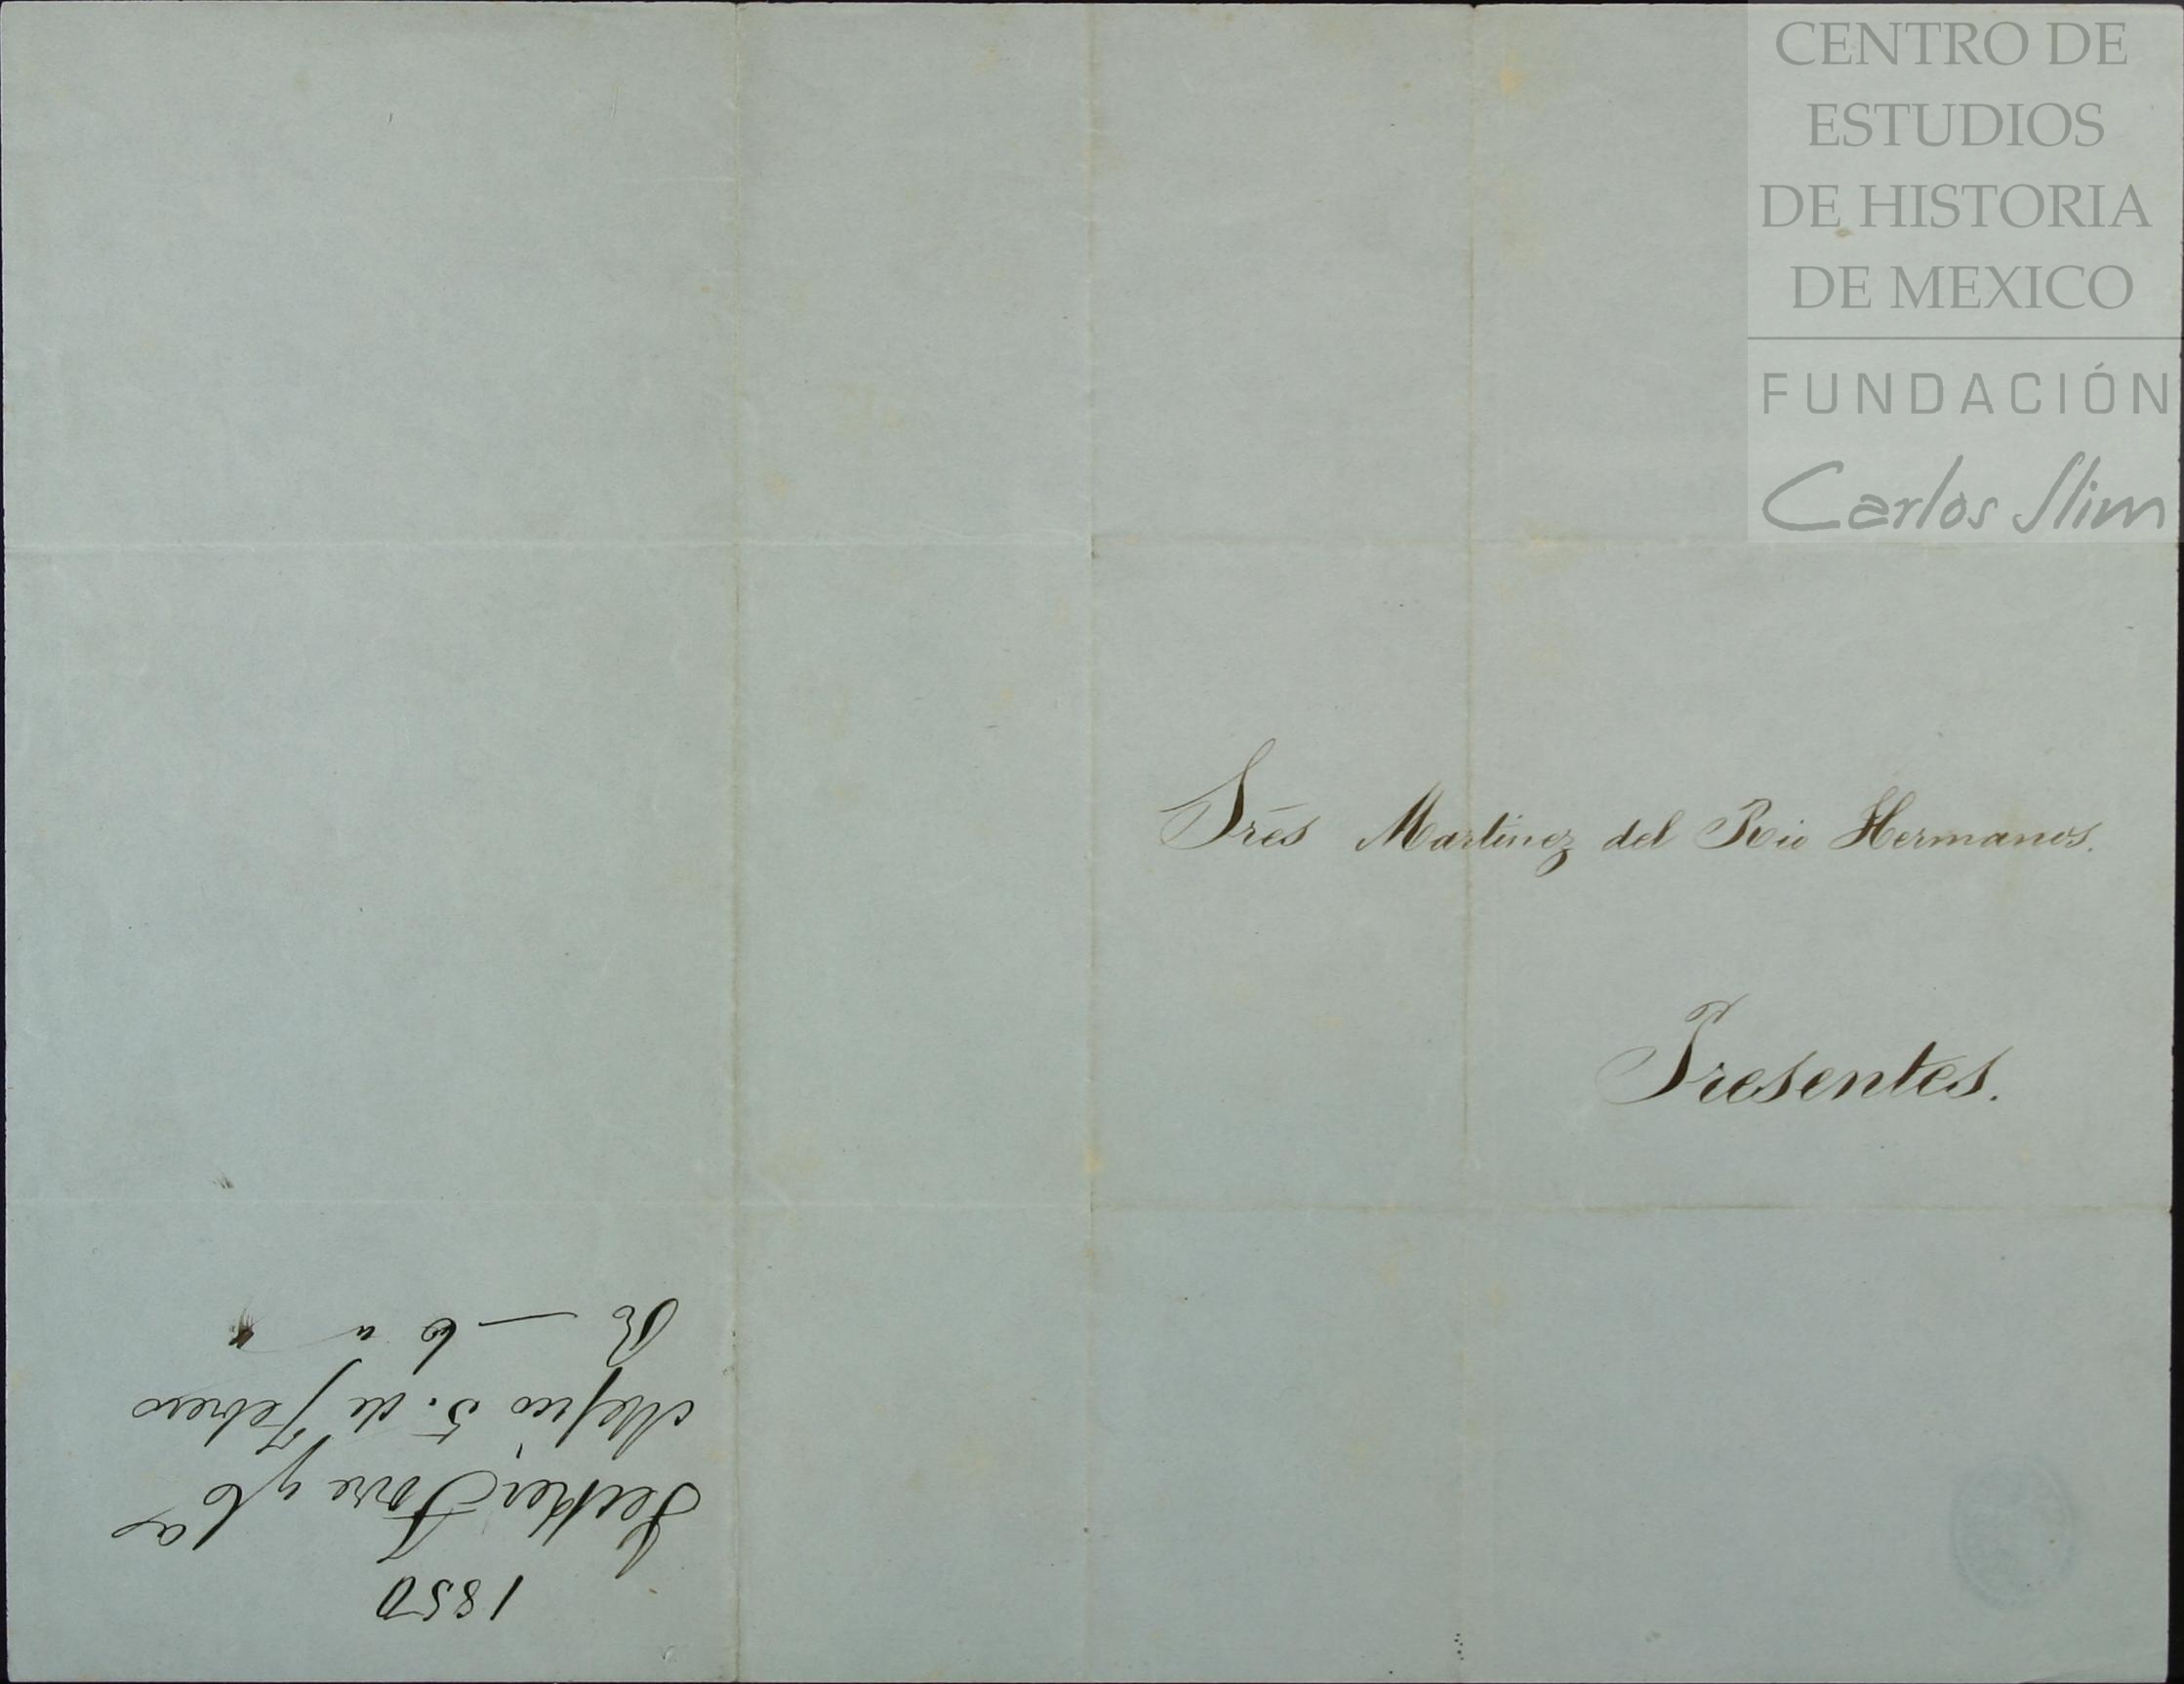 CENTRO DE
ESTUDIOS
DE HISTORIA
DE MEXICO
FUNDACIÓN
Carlos Slim
Sres Martinez del Rio Hermanos.
Presentes.
1850
Jecker Torre y Ca
Mejico 5. de Febrero
R — 6 " "